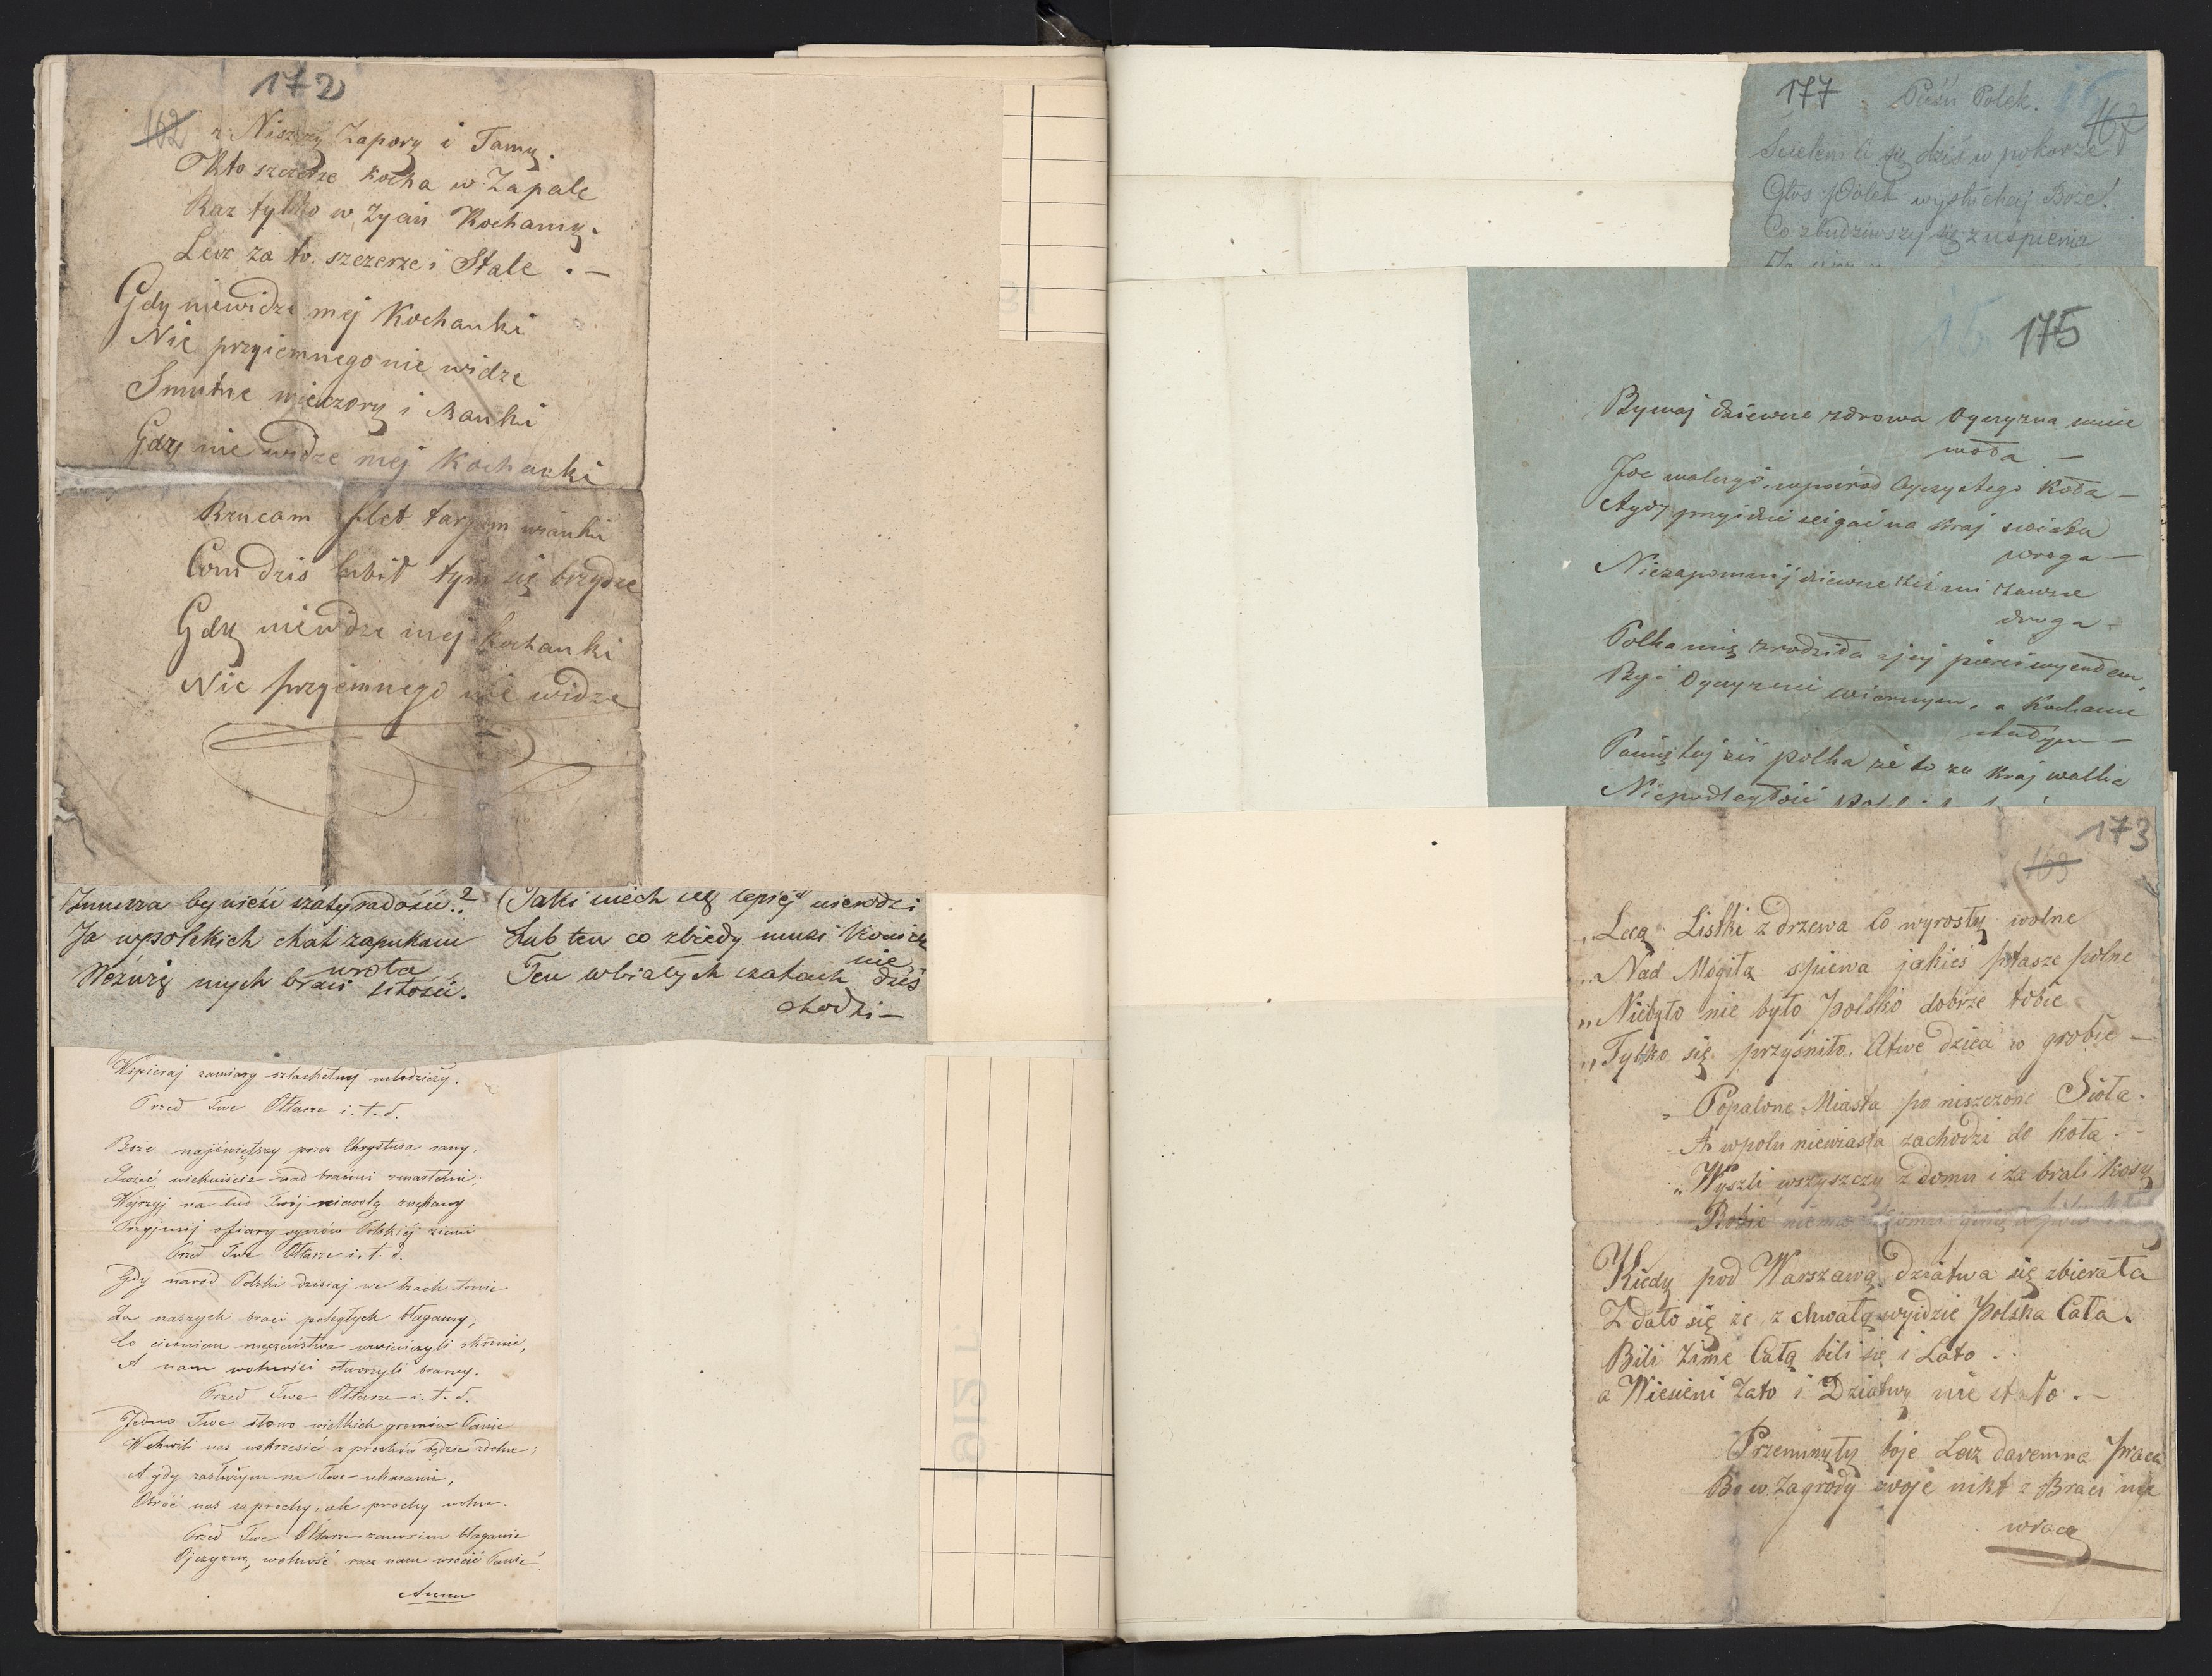 172
162
Niszczy Zapory i Tamy.
Kto szczerze kocha w Zapale
Raz tylko w Zyciu Kochamy.
Lecz za to szczerze i Stale . —
Gdy niewidze mej Kochanki
Nic przyiemnego nie widze
Smutne wieczory i Ranki
Gdy nie widze mej Kochanki
Rzucam flet targam wianki
Com dzis lubił tym się brzydze
Gdy niewidze mej Kochanki
Nic przyiemnego nie widze
by nieść szaty radości..?
Ja wpolskich chat zapukam
wrota
mych braci litości.
(Taki niech się lepiej nierodzi
Lub ten co zbiedy musi
nie
Ten wbiałych szatach dziś
chodzi —
Wspieraj zamiary szlachetnej młodzieży.
Przed Twe Ołtarze i. t. d.
Boże najświętszy przez Chrystusa rany,
wiekuiście nad braćmi zmarłemi;
Wejrzyj na lud Twój niewolą znękany
Przyjmij ofiary synów Polskiéj ziemi
Przed Twe Ołtarze i. t. d.
Gdy naród Polski dzisiaj we łzach tonie
Za naszych braci poległych błagamy;
Co cierniem męczeństwa uwieńczyli skronie,
A nam wolności otworzyli bramy.
Przed Twe Ołtarze i. t. d.
Jedno Twe słowo wielkich gromów Panie
W chwili nas wskrzesić z prochów będzie zdolne;
A gdy zasłużym na Twe ukaranie,
Obróć nas w prochy, ale prochy wolne.
Przed Twe Ołtarze zanosim błaganie
Ojczyznę, wolność racz nam wrócić Panie!
Amen
177 Pieśń Polek.
167
się dziś w pokorze
Głos Polek wysłuchaj Boże!
Co zbudziwszy się z uspienia
15 175
Bywaj dziewcze zdrowa Oyczyzna mnie
woła —
Idę walczyć wpośród Koła —
A gdy przyidzie scigać na kraj
wroga —
Niezapomnij dziewcze żeś mi zawsze
droga —
Polka mię zrodziła z jej piersi wyssałem,
Być Oyczyznie wiernym, a Kochance
stałym —
Pamiętaj żeś polka że to za kraj walka
Niepodległość
173
163
„Lecą Listki z drzewa Co wyrosły wolne
„Nad Mogiłą spiewa jakieś ptasze polne
„Niebyło nie było Polsko dobrze tobie
„Tylko się przysniło. A twe dzieci w grobie —
„Popalone Miasta poniszczone Sioła.
A wpolu niewiasta zachodzi do koła.
„Wyszli wszyszczy z domu i za brali kosy
Robić niema
Kiedy pod Warszawą dziatwa się zbierała
Zdało się że z chwałą wyidzie Polska Cała.
Bili Zime Całą bili się i Lato .
a Wiesieni Zato i Dziatwy nie stało . —
Przeminęły boje Lecz daremna praca
Bo w Zagrody swoje nikt z Braci nie
wraca